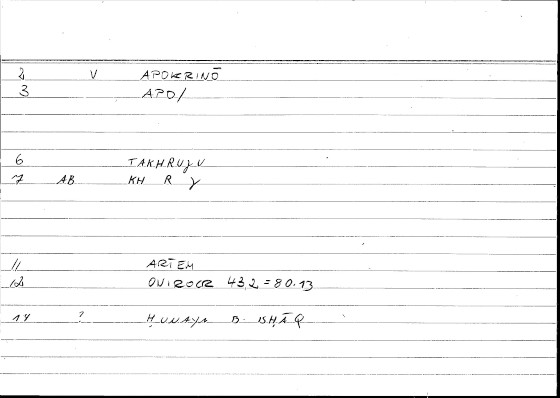 2 V APOKRINŌ
3 APO/
6 TAKHRUJU
7 AB KH R J
11 ARTEM
12 OVIROCR 43.2=80.13
14 ? ḤUNAYN B. ISḤĀQ